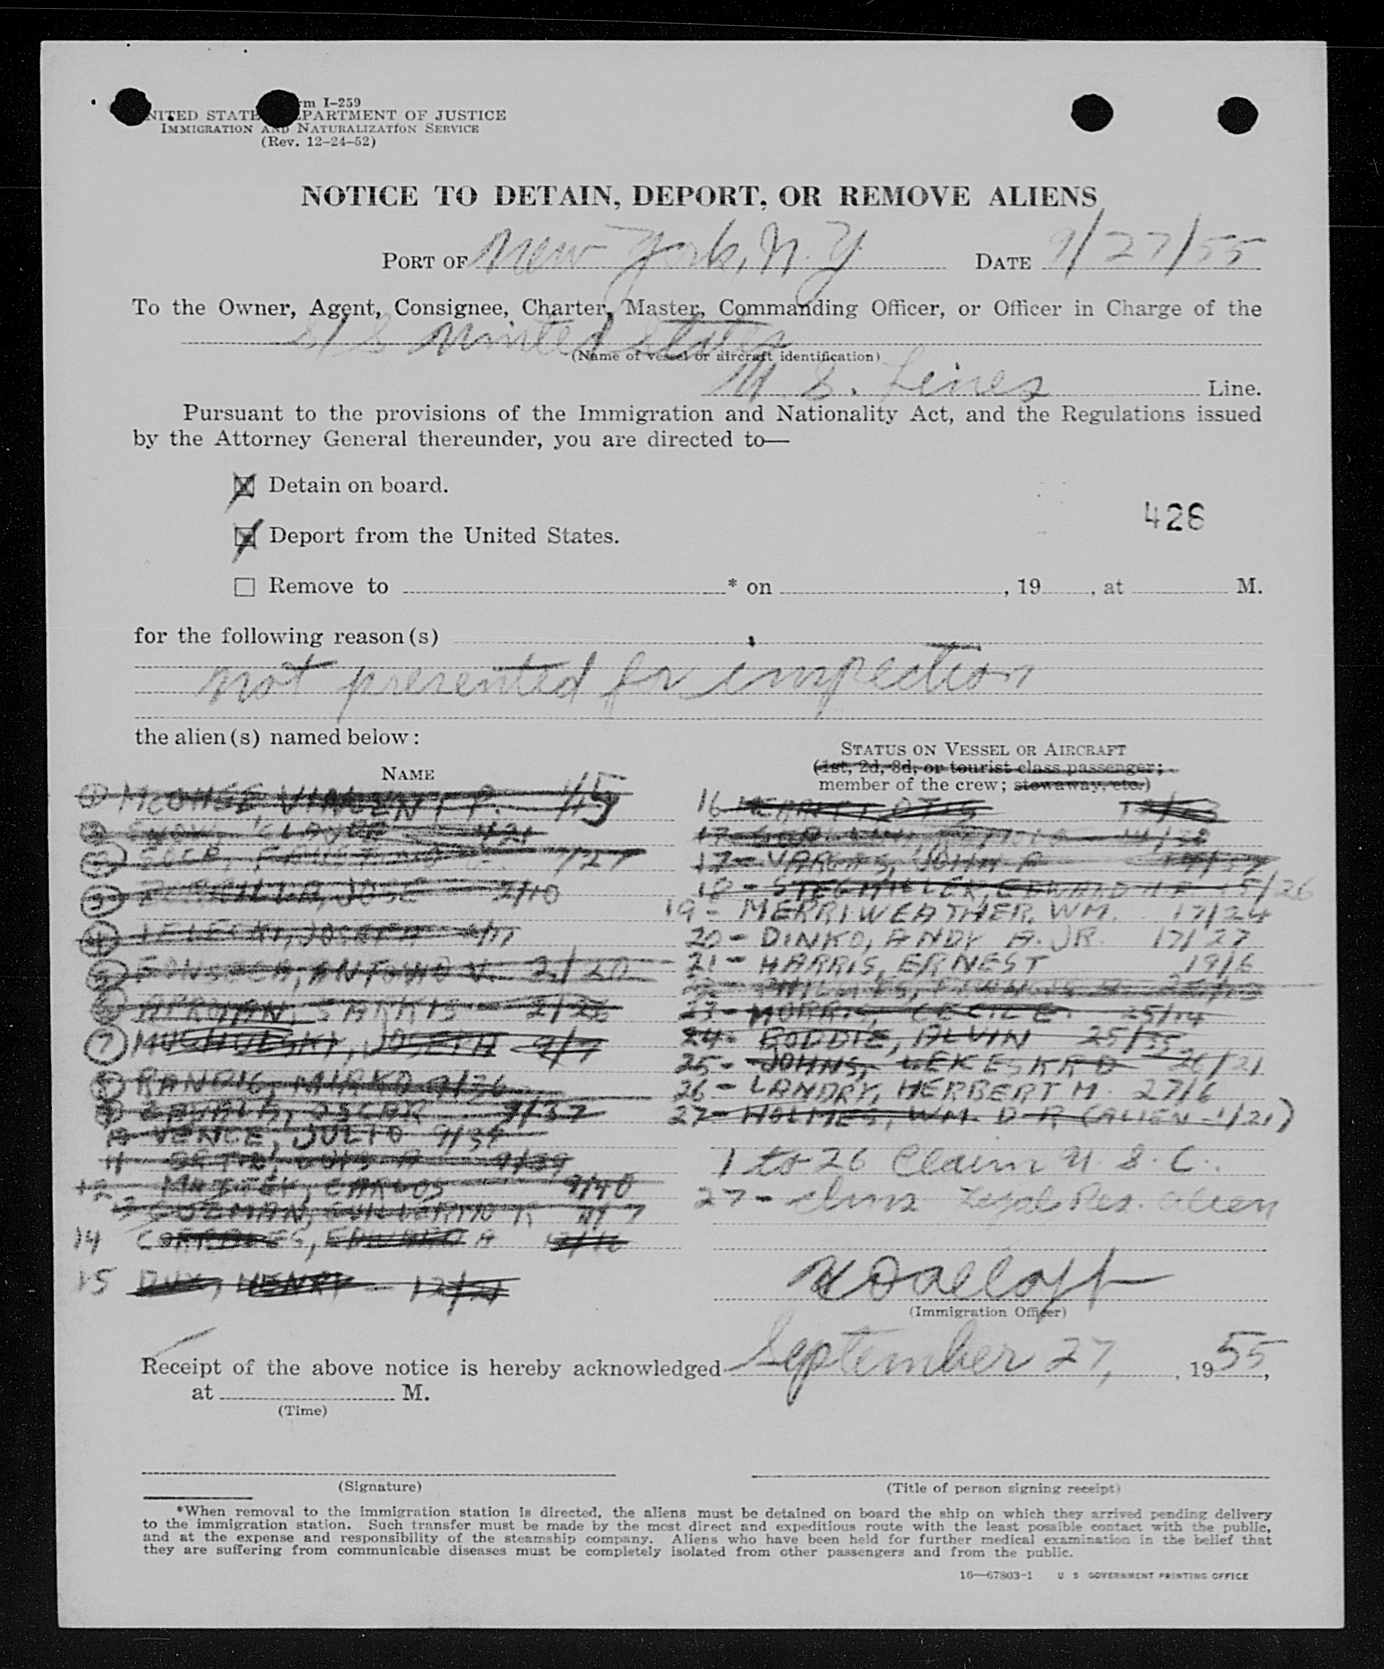 Form I-259
UNITED STATES DEPARTMENT OF JUSTICE
IMMIGRATION AND NATURALIZATION SERVICE
(Rev. 12-24-52)
NOTICE TO DETAIN, DEPORT, OR REMOVE ALIENS
PORT OF New York, N.Y. DATE 9/27/55
To the Owner, Agent, Consignee, Charter, Master, Commanding Officer, or Officer in Charge of the
S/S United States
(Name of vessel or aircraft identification)
U S. Lines Line.
Pursuant to the provisions of the Immigration and Nationality Act, and the Regulations issued
by the Attorney General thereunder, you are directed to—
☒ Detain on board.
428
☒ Deport from the United States.
☐ Remove to * on , 19 , at M.
for the following reason(s)
not presented for inspection
the alien(s) named below:
STATUS ON VESSEL OR AIRCRAFT
(1st, 2d, 3d, or tourist class passenger;
NAME
member of the crew; stowaway, etc.)
1 VINCENT P. 45
2
JOSE 2/10
4 JOSEPH
5 FONSECA, ANTONIO V. 2/20
6 SARKIS 2/26
7 JOSEPH 9/7
RANDIC, MIRKO 9/36
ZAVALA, OSCAR 9/37
VENCE, JULIO 9/39
11 9/39
12 CARLOS 9/40
13 GUZMAN, GUILLERMO R
14 EDWARD A 12/16
15 DUX, HENRY 12/21
16 MERRITT, OTIS
17
17- VARGAS, JOHN A
18- STEGMILLER, EDWARD 15/26
19- MERRIWEATHER, WM. 17/24
20- DINKO, ANDY A. JR. 17/27
21- HARRIS, ERNEST 19/6
PHILLIPS,
23- MORRIS, CECIL E. 25/14
24- BODDIE, ALVIN 25/35
25- JOHNS, 26/21
26- LANDRY, HERBERT M. 27/6
27- HOLMES, WM. D R (ALIEN 1/21)
1 to 26 Claim U. S. C.
27- Legal Res. alien
(Immigration Officer)
Receipt of the above notice is hereby acknowledged September 27, , 1955,
at M.
(Time)
(Signature) (Title of person signing receipt)
*When removal to the immigration station is directed, the aliens must be detained on board the ship on which they arrived pending delivery
to the immigration station. Such transfer must be made by the most direct and expeditious route with the least possible contact with the public,
and at the expense and responsibility of the steamship company. Aliens who have been held for further medical examination in the belief that
they are suffering from communicable diseases must be completely isolated from other passengers and from the public.
16—67803-1 U S GOVERNMENT PRINTING OFFICE